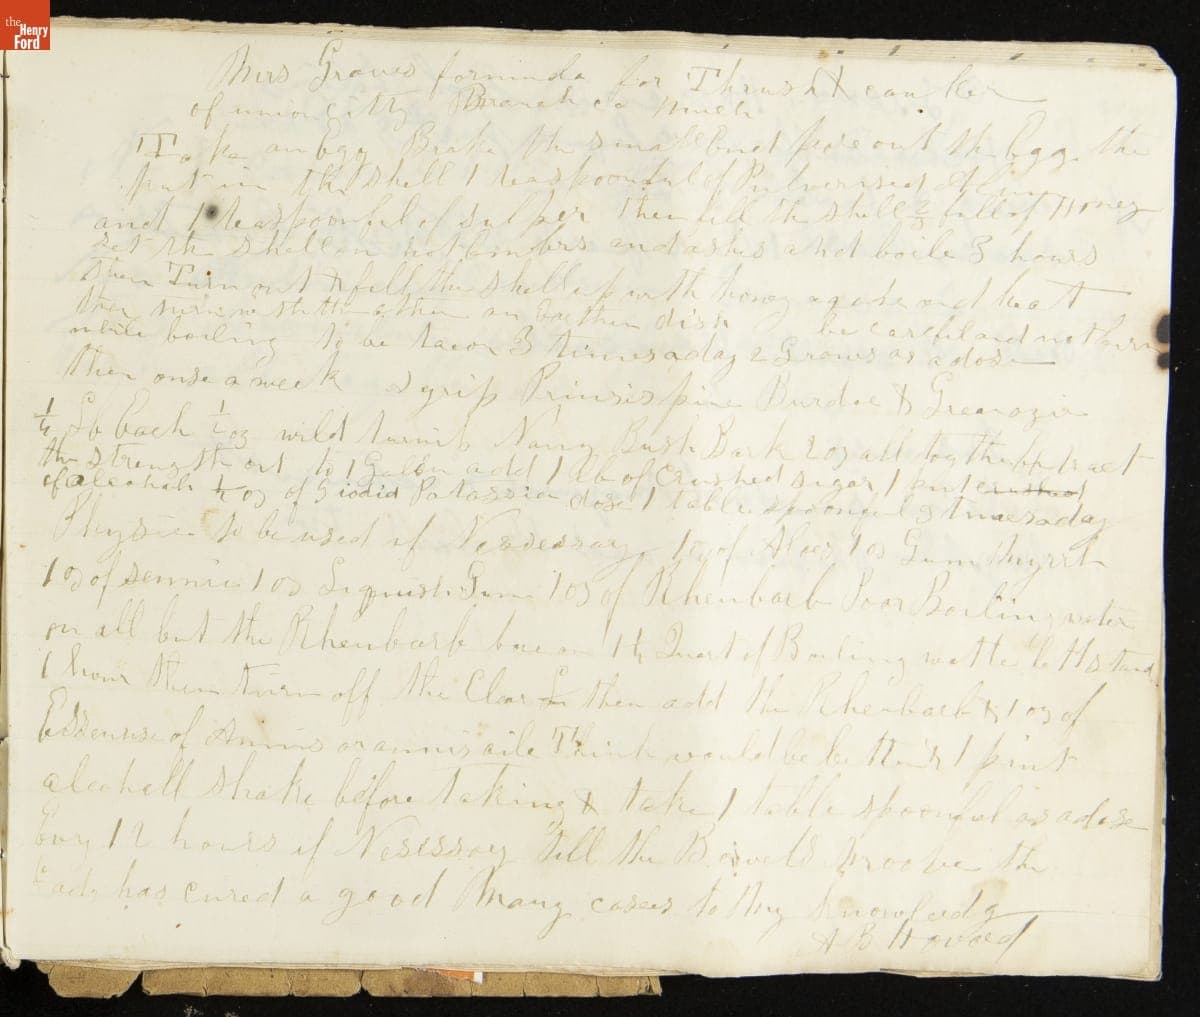 the
Henry
Ford
Mrs Graves formula for Thrush & canker
of union city Branch co Mich
Take an Egg Brake the small End pore out the Egg the
put in the shell 1 teaspoonful of Pulverised Alum
and 1 teaspoonful of sulper then fill the shell 2/3 full of Honey
set the shell on hot embrs and ashes and boile 3 hours
then Turn out & fill the shell up with honey and heat
then turn in earthen dish be carful and not burn
while boiling to be tacon 3 times a day 2 Grans as a dose
then onse a week grip Prinsis pine Burdoc &
1/4 Lb Each 1/2 oz wild turnip Bush Bark 2 oz all togther
the strength out to 1 Galon add 1 Lb of Crushed sugar 1 pint crushed
of alcohah 1/2 oz of iodid Potassia dose 1 table spoonful 3 times a day
Physic to be used if Nessessary 1 oz of Aloes 1 oz Gum Myrrh
1 oz of sennia 1 oz Liquish Gum 1 oz of Rheubarb Poor Boiling water
on all but the Rheubarb 1 1/2 Quart of Boiling watter let it stand
1 hour then turn off the Clear then add the Rheubarb & 1 oz of
Essense of Annis or annis oile Think would be better & 1 pint
alcohall shake before taking & take 1 table spoonful as a dose
Evry 12 hours if Nesessary till the Bowels moove the
has cured a good Many cases to My knowledg
A B Havard